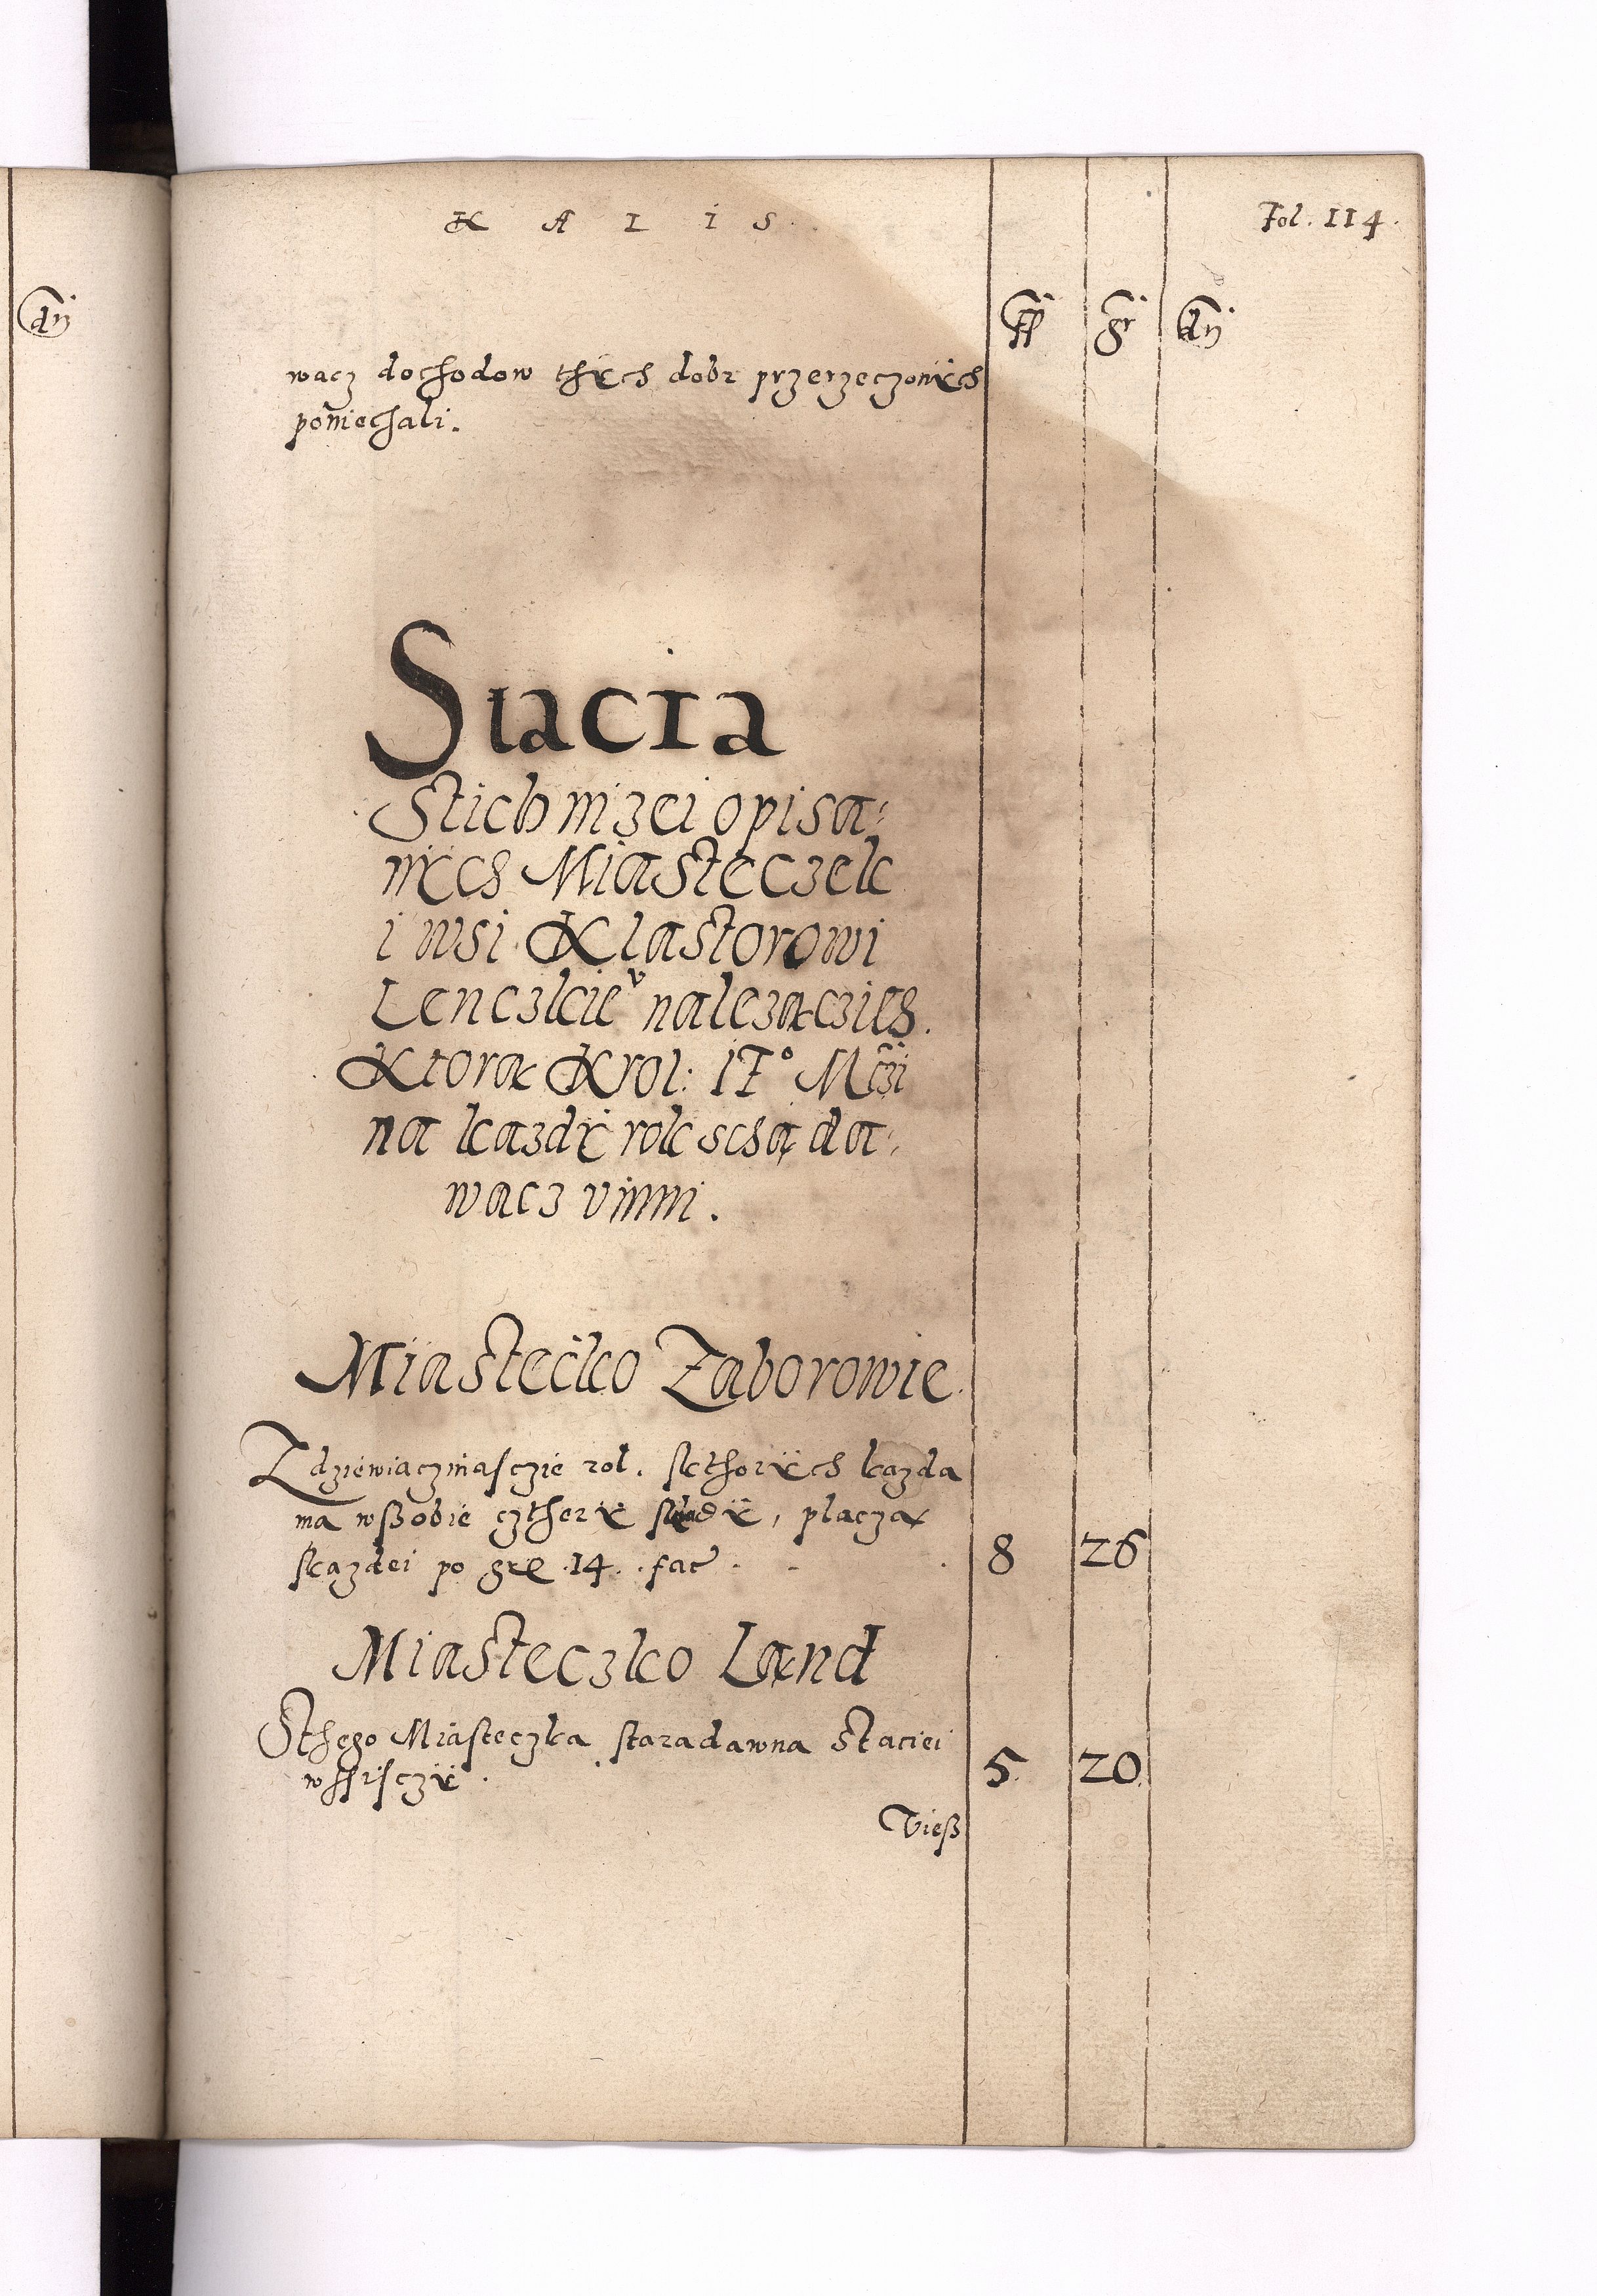 K A L i S.
Fol. 114.
dn
ff gr dn
wacz dochodow thÿch dobr przerzeczonÿch
poniechali.
Stacia
Stich nizei opisa-
nÿch Miasteczek
i wsi Klastorowi
Lenczkie^v nalezączich.
Ktorą Krol: JE° Mczi
na kazdÿ rok schą da-
wacz vinni.
Miastečko Zaborowie.
Zdziewiacznasczie rol. skthorÿch kazda
ma wßobie cztherÿ sladÿ, placzą
skazdei po gre .14. . fac̃ . - . 8 26
Miasteczko Ląnd
Sthego Miasteczka staradawna Staciei 5. 20.
wssisczÿ . .
Vieß